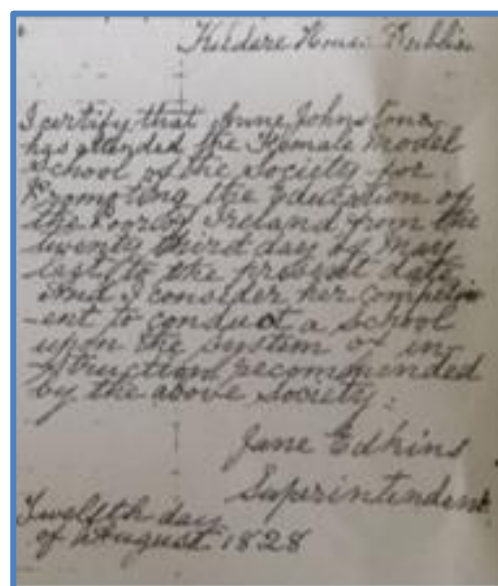 Kildare House Dublin
I certify that Anne Johnstone
has attended the Female Model
School of the Society for
Promoting the Education of
the Poor of Ireland from the
twenty third day of May
last to the present date
And I consider her compet
-ent to conduct a School
upon the system of in-
struction recommended
by the above Society.
Jane Edkins
Superintendent
Twelfth day
of August 1828